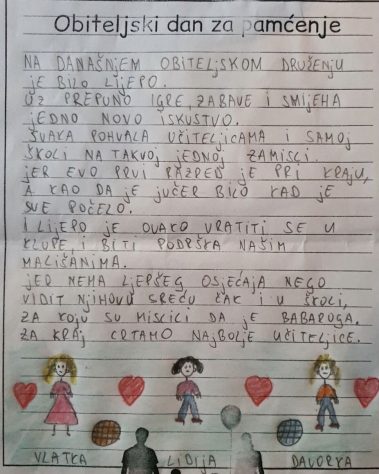 Obiteljski dan za pamćenje
NA DANAŠNJEM OBITELJSKOM DRUŽENJU
JE BILO LIJEPO.
UZ PREPUNO IGRE, ZABAVE I SMIJEHA
JEDNO NOVO ISKUSTVO.
SVAKA POHVALA UČITELJICAMA I SAMOJ
ŠKOLI NA TAKVOJ JEDNOJ ZAMISLI.
JER EVO PRVI RAZRED JE PRI KRAJU,
A KAO DA JE JUČER BILO KAD JE
SVE POČELO.
I LIJEPO JE OVAKO VRATITI SE U
KLUPE, I BITI PODRŠKA NAŠIM
MALIŠANIMA.
JER NEMA LJEPŠEG OSJEĆAJA NEGO
VIDIT NJIHOVU SREĆU ČAK I U ŠKOLI,
ZA KOJU SU MISLILI DA JE BABAROGA.
ZA KRAJ CRTAMO NAJBOLJE UČITELJICE.
VLATKA LIDIJA DAVORKA